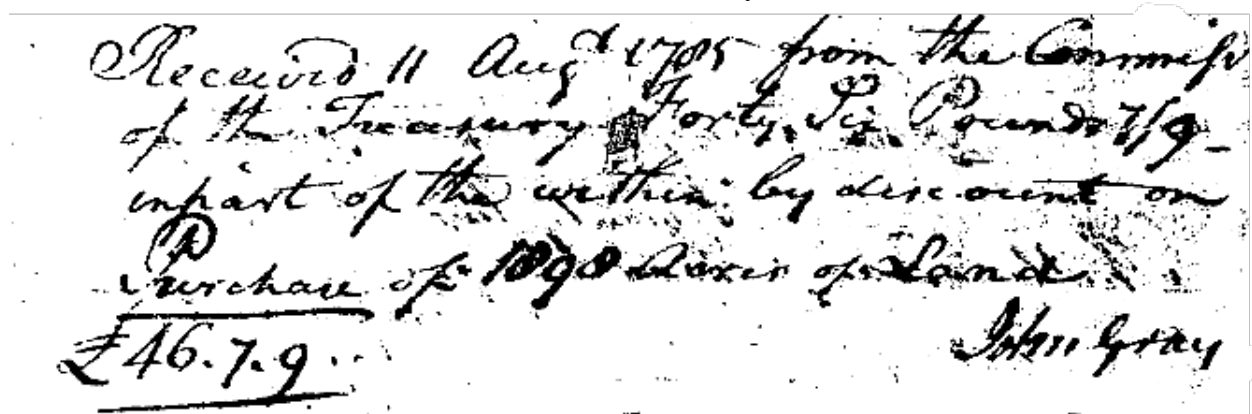 Received 11 Augt 1785 from the Commissr
of the Treasury Forty Six Pounds 7/9 -
in part of the within by discount on
Purchase of 1898 Acres of Land
£46.7.9. John Gray